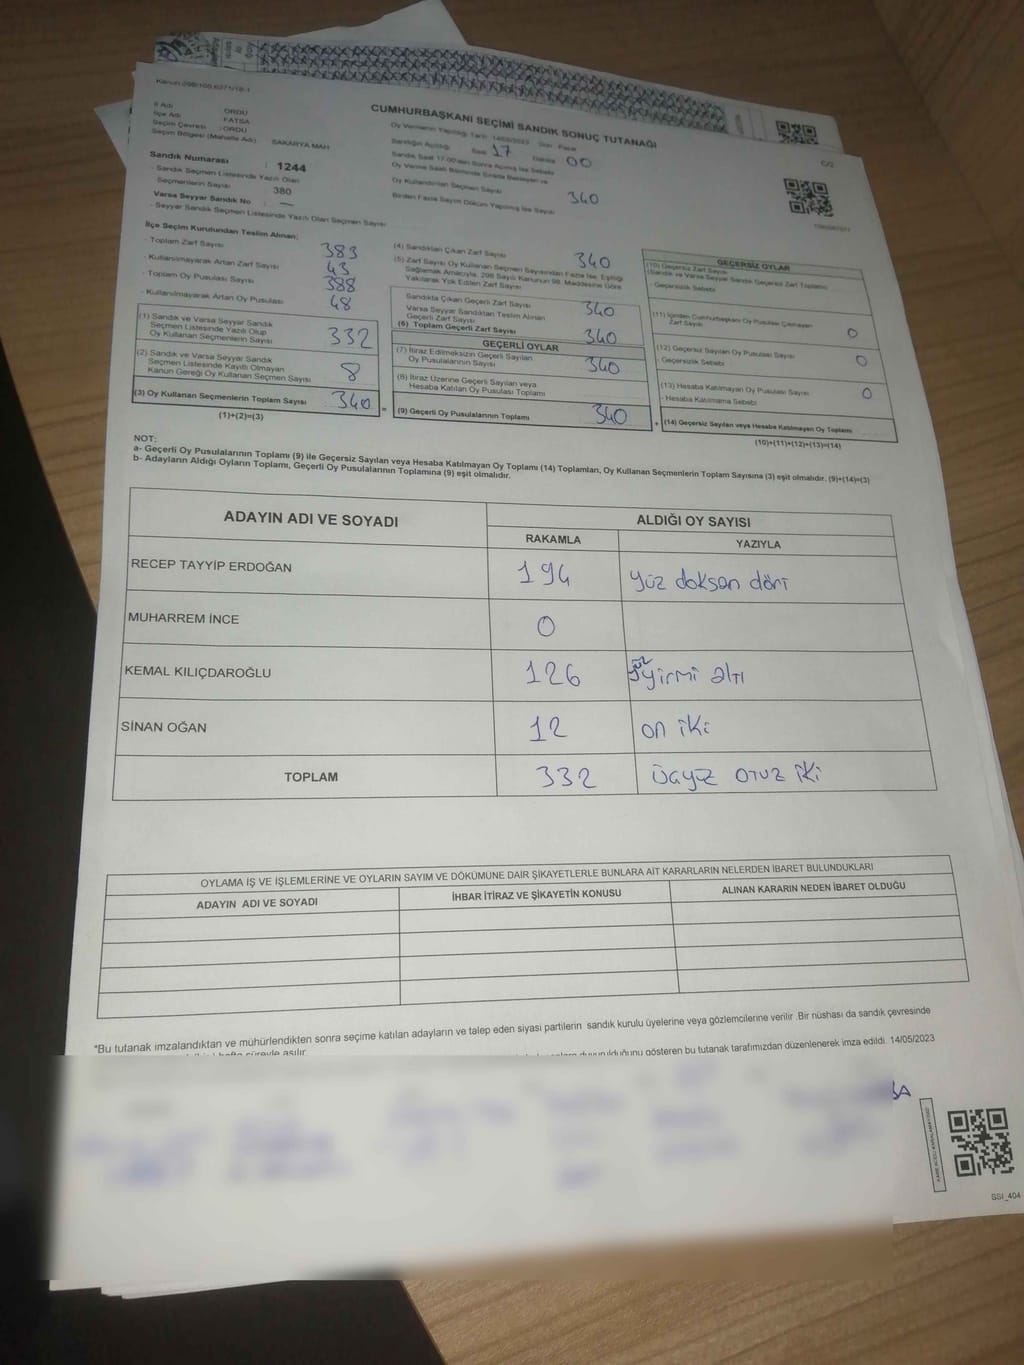 Kanun:298/100,6271/18-1
CUMHURBAŞKANI SEÇİMİ SANDIK SONUÇ TUTANAĞI
C/2
İl Adı : ORDU
İlçe Adı : FATSA
Seçim Çevresi : ORDU
Seçim Bölgesi (Mahalle Adı) : SAKARYA MAH
Sandık Numarası : 1244
- Sandık Seçmen Listesinde Yazılı Olan
Seçmenlerin Sayısı : 380
Varsa Seyyar Sandık No : —
- Seyyar Sandık Seçmen Listesinde Yazılı Olan Seçmen Sayısı
Oy Vermenin Yapıldığı Tarih: 14/05/2023 Gün : Pazar
Sandığın Açıldığı Saat 17 Dakika 00
Sandık Saat 17:00'den Sonra Açılmış İse Sebebi
Oy Verme Saati Bitiminde Sırada Bekleyen ve
Oy Kullandırılan Seçmen Sayısı 340
Birden Fazla Sayım Döküm Yapılmış İse Sayısı
İlçe Seçim Kurulundan Teslim Alınan;
- Toplam Zarf Sayısı 383
- Kullanılmayarak Artan Zarf Sayısı 43
- Toplam Oy Pusulası Sayısı 388
- Kullanılmayarak Artan Oy Pusulası 48
(1) Sandık ve Varsa Seyyar Sandık
Seçmen Listesinde Yazılı Olup
Oy Kullanan Seçmenlerin Sayısı 332
(2) Sandık ve Varsa Seyyar Sandık
Seçmen Listesinde Kayıtlı Olmayan
Kanun Gereği Oy Kullanan Seçmen Sayısı 8
(3) Oy Kullanan Seçmenlerin Toplam Sayısı 340 =
(1)+(2)=(3)
(4) Sandıktan Çıkan Zarf Sayısı 340
(5) Zarf Sayısı Oy Kullanan Seçmen Sayısından Fazla İse, Eşitliği
Sağlamak Amacıyla, 298 Sayılı Kanunun 98. Maddesine Göre
Yakılarak Yok Edilen Zarf Sayısı
Sandıkta Çıkan Geçerli Zarf Sayısı 340
Varsa Seyyar Sandıktan Teslim Alınan
Geçerli Zarf Sayısı
(6) Toplam Geçerli Zarf Sayısı 340
GEÇERLİ OYLAR
(7) İtiraz Edilmeksizin Geçerli Sayılan
Oy Pusulalarının Sayısı 340
(8) İtiraz Üzerine Geçerli Sayılan veya
Hesaba Katılan Oy Pusulası Toplamı
(9) Geçerli Oy Pusulalarının Toplamı 340 +
GEÇERSİZ OYLAR
(10) Geçersiz Zarf Sayısı
(Sandık ve Varsa Seyyar Sandık Geçersiz Zarf Toplamı)
- Geçersizlik Sebebi
(11) İçinden Cumhurbaşkanı Oy Pusulası Çıkmayan
Zarf Sayısı 0
(12) Geçersiz Sayılan Oy Pusulası Sayısı 0
- Geçersizlik Sebebi
(13) Hesaba Katılmayan Oy Pusulası Sayısı 0
- Hesaba Katılmama Sebebi
(14) Geçersiz Sayılan veya Hesaba Katılmayan Oy Toplamı
(10)+(11)+(12)+(13)=(14)
NOT:
a- Geçerli Oy Pusulalarının Toplamı (9) ile Geçersiz Sayılan veya Hesaba Katılmayan Oy Toplamı (14) Toplamları, Oy Kullanan Seçmenlerin Toplam Sayısına (3) eşit olmalıdır. (9)+(14)=(3)
b- Adayların Aldığı Oyların Toplamı, Geçerli Oy Pusulalarının Toplamına (9) eşit olmalıdır.
ADAYIN ADI VE SOYADI
ALDIĞI OY SAYISI
RAKAMLA YAZIYLA
RECEP TAYYİP ERDOĞAN 194 yüz doksan dört
MUHARREM İNCE 0
KEMAL KILIÇDAROĞLU 126 yirmi altı
SİNAN OĞAN 12 on iki
TOPLAM 332 üçyüz otuz iki
OYLAMA İŞ VE İŞLEMLERİNE VE OYLARIN SAYIM VE DÖKÜMÜNE DAİR ŞİKAYETLERLE BUNLARA AİT KARARLARIN NELERDEN İBARET BULUNDUKLARI
ADAYIN ADI VE SOYADI İHBAR İTİRAZ VE ŞİKAYETİN KONUSU ALINAN KARARIN NEDEN İBARET OLDUĞU
*Bu tutanak imzalandıktan ve mühürlendikten sonra seçime katılan adayların ve talep eden siyasi partilerin sandık kurulu üyelerine veya gözlemcilerine verilir .Bir nüshası da sandık çevresinde
hafta süreyle asılır
duyurulduğunu gösteren bu tutanak tarafımızdan düzenlenerek imza edildi. 14/05/2023
SSI_404